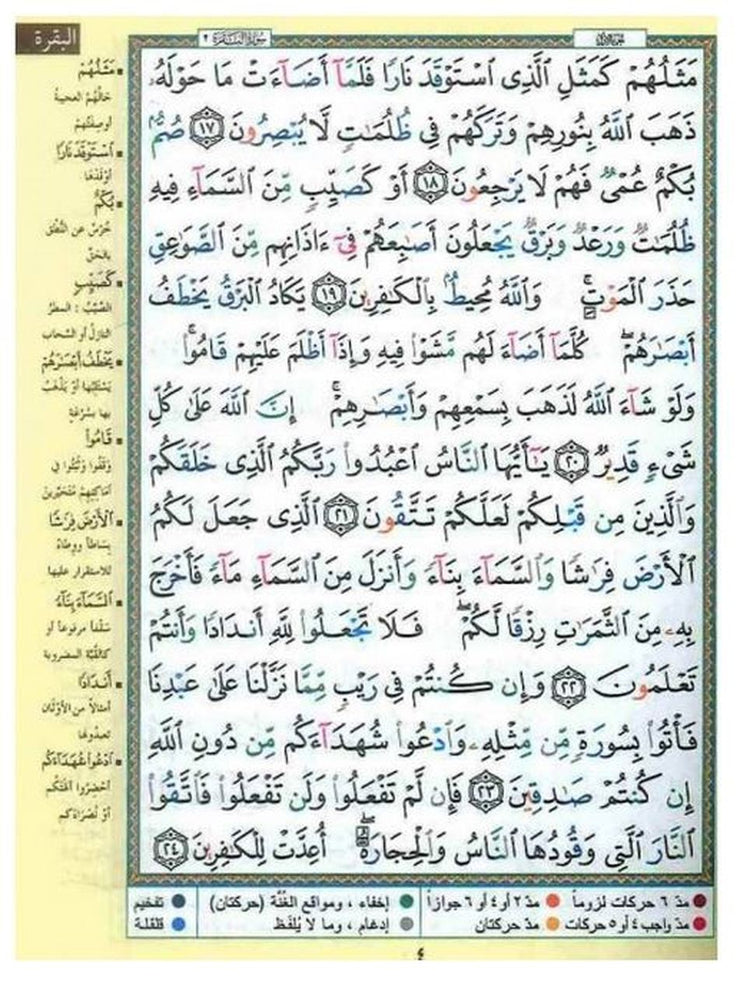 البقرة
سورة البقرة ٢
الجزء الأول
مَثَلُهُمْ كَمَثَلِ ٱلَّذِى ٱسْتَوْقَدَ نَارًا فَلَمَّآ أَضَآءَتْ مَا حَوْلَهُۥ
ذَهَبَ ٱللَّهُ بِنُورِهِمْ وَتَرَكَهُمْ فِى ظُلُمَٰتٍ لَّا يُبْصِرُونَ ١٧ صُمٌّۢ
بُكْمٌ عُمْىٌ فَهُمْ لَا يَرْجِعُونَ ١٨ أَوْ كَصَيِّبٍ مِّنَ ٱلسَّمَآءِ فِيهِ
ظُلُمَٰتٌ وَرَعْدٌ وَبَرْقٌ يَجْعَلُونَ أَصَٰبِعَهُمْ فِىٓ ءَاذَانِهِم مِّنَ ٱلصَّوَٰعِقِ
حَذَرَ ٱلْمَوْتِۚ وَٱللَّهُ مُحِيطٌۢ بِٱلْكَٰفِرِينَ ١٩ يَكَادُ ٱلْبَرْقُ يَخْطَفُ
أَبْصَٰرَهُمْۖ كُلَّمَآ أَضَآءَ لَهُم مَّشَوْا۟ فِيهِ وَإِذَآ أَظْلَمَ عَلَيْهِمْ قَامُوا۟ۚ
وَلَوْ شَآءَ ٱللَّهُ لَذَهَبَ بِسَمْعِهِمْ وَأَبْصَٰرِهِمْۚ إِنَّ ٱللَّهَ عَلَىٰ كُلِّ
شَىْءٍ قَدِيرٌ ٢٠ يَٰٓأَيُّهَا ٱلنَّاسُ ٱعْبُدُوا۟ رَبَّكُمُ ٱلَّذِى خَلَقَكُمْ
وَٱلَّذِينَ مِن قَبْلِكُمْ لَعَلَّكُمْ تَتَّقُونَ ٢١ ٱلَّذِى جَعَلَ لَكُمُ
ٱلْأَرْضَ فِرَٰشًا وَٱلسَّمَآءَ بِنَآءً وَأَنزَلَ مِنَ ٱلسَّمَآءِ مَآءً فَأَخْرَجَ
بِهِۦ مِنَ ٱلثَّمَرَٰتِ رِزْقًا لَّكُمْۖ فَلَا تَجْعَلُوا۟ لِلَّهِ أَندَادًا وَأَنتُمْ
تَعْلَمُونَ ٢٢ وَإِن كُنتُمْ فِى رَيْبٍ مِّمَّا نَزَّلْنَا عَلَىٰ عَبْدِنَا
فَأْتُوا۟ بِسُورَةٍ مِّن مِّثْلِهِۦ وَٱدْعُوا۟ شُهَدَآءَكُم مِّن دُونِ ٱللَّهِ
إِن كُنتُمْ صَٰدِقِينَ ٢٣ فَإِن لَّمْ تَفْعَلُوا۟ وَلَن تَفْعَلُوا۟ فَٱتَّقُوا۟
ٱلنَّارَ ٱلَّتِى وَقُودُهَا ٱلنَّاسُ وَٱلْحِجَارَةُۖ أُعِدَّتْ لِلْكَٰفِرِينَ ٢٤
مَثَلُهُمْ
حالُهُمُ العجيبةُ
أو صِفَتُهُمْ
ٱسْتَوْقَدَ نَارًا
أوْقَدَها
بُكْمٌ
خُرْسٌ عن النُّطْقِ
بالحقِّ
كَصَيِّبٍ
الصَّيِّبُ : المطرُ
النازلُ أو السَّحاب
يَخْطَفُ أَبْصَٰرَهُمْ
يَسْتَلِبُها أوْ يَذْهَبُ
بها بسُرْعَةٍ
قَامُوا۟
وَقَفُوا وثَبَتُوا في
أماكِنِهِمْ مُتَحَيِّرينَ
ٱلْأَرْضَ فِرَٰشًا
بِساطاً ووِطاءً
للاستقرار عليها
ٱلسَّمَآءَ بِنَآءً
سَقْفاً مرفوعاً أو
كالقُبَّة المضروبة
أَندَادًا
أمثالاً من الأوْثان
تعبدُونَها
ٱدْعُوا۟ شُهَدَآءَكُم
أحْضِرُوا آلهتَكُم
أوْ نُصَرَاءَكم
مدّ ٦ حركات لزوماً
مدّ ٢ أو ٤ أو ٦ جوازاً
إخفاء ، ومواقع الغُنَّة (حركتان)
تفخيم
مدّ واجب ٤ أو ٥ حركات
مدّ حركتان
إدغام ، وما لا يُلفَظ
قلقلة
٤